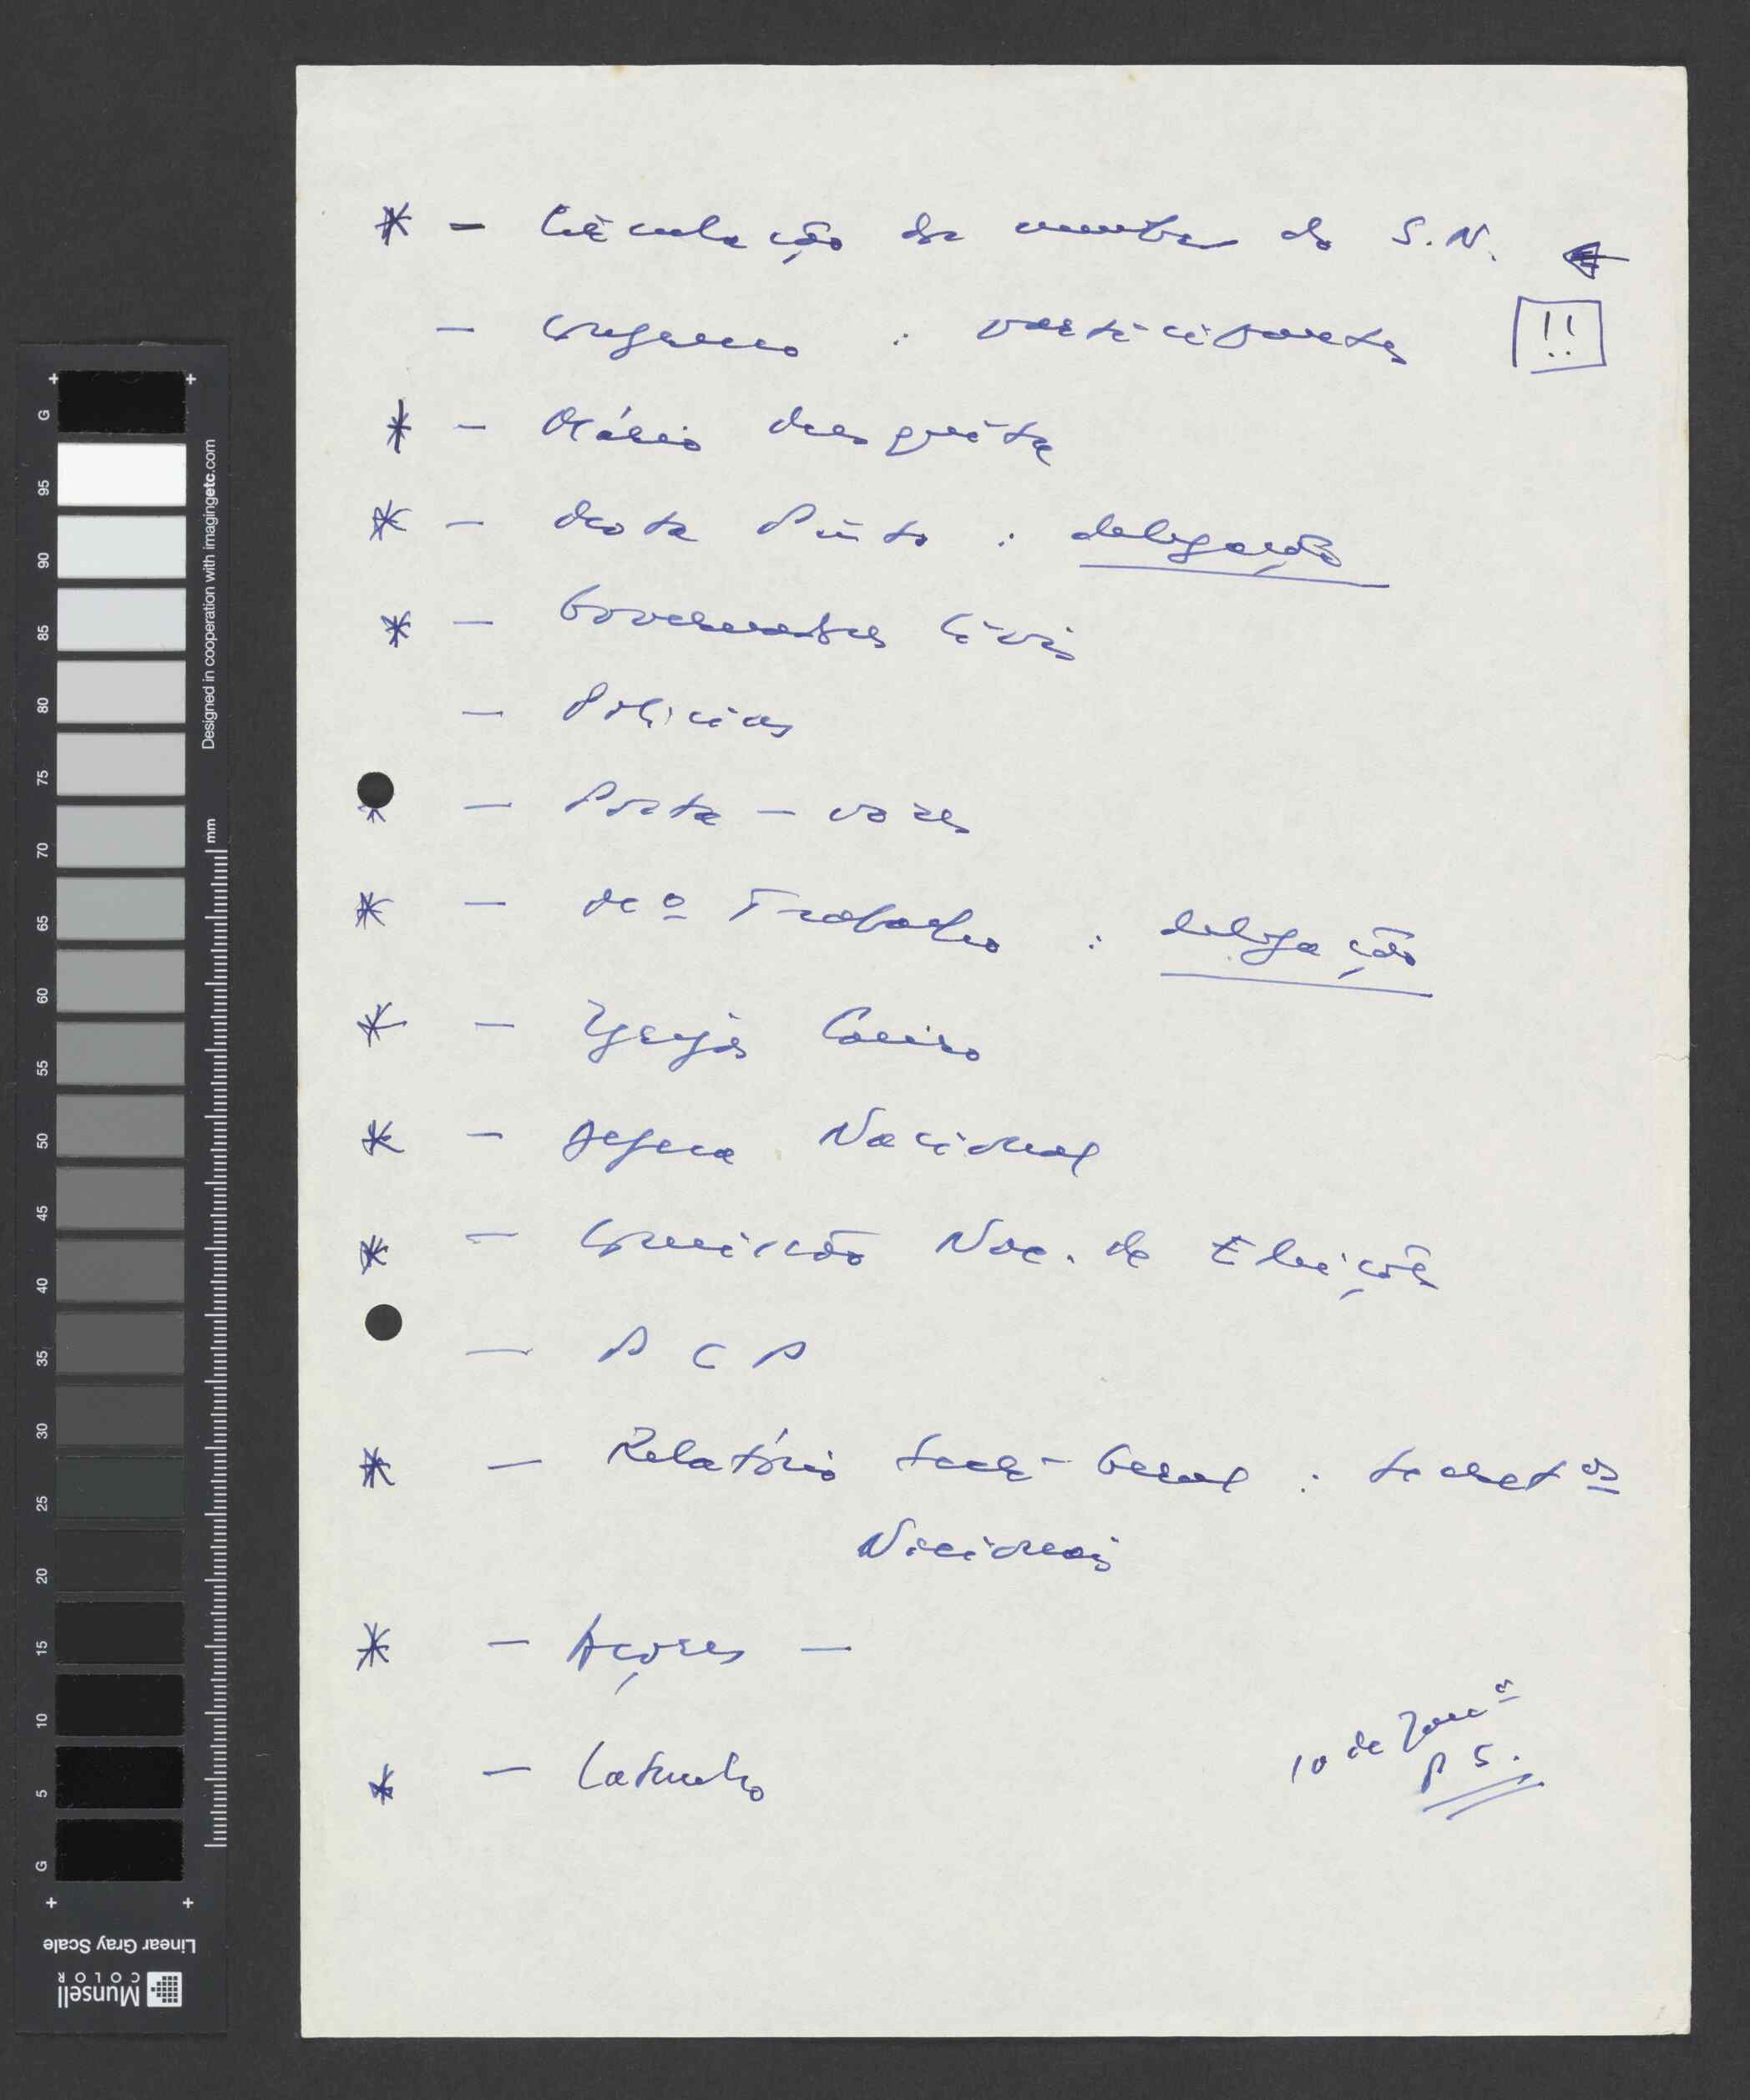 * - Circulação de membros do S.N. ←
- Congresso : participantes !!
* - Mário Mesquita
* - Mota Pinto : delegação
* - Governadores Civis
- Polícias
* - Porta - vozes
* - Mº Trabalho : delegação
* - Igrejas Caeiro
* - Defesa Nacional
* - Comissão Nac. de Eleições
- P C P
* - Relatório Secr - Geral : Secretos
Nacionais
* - Açores -
* - Catarino
10 de Janº
P S.
G 95 90 85 80 75 70 65 60 55 50 45 40 35 30 25 20 15 10 5 G
Designed in cooperation with imagingetc.com
mm
Linear Gray Scale
Munsell
COLOR